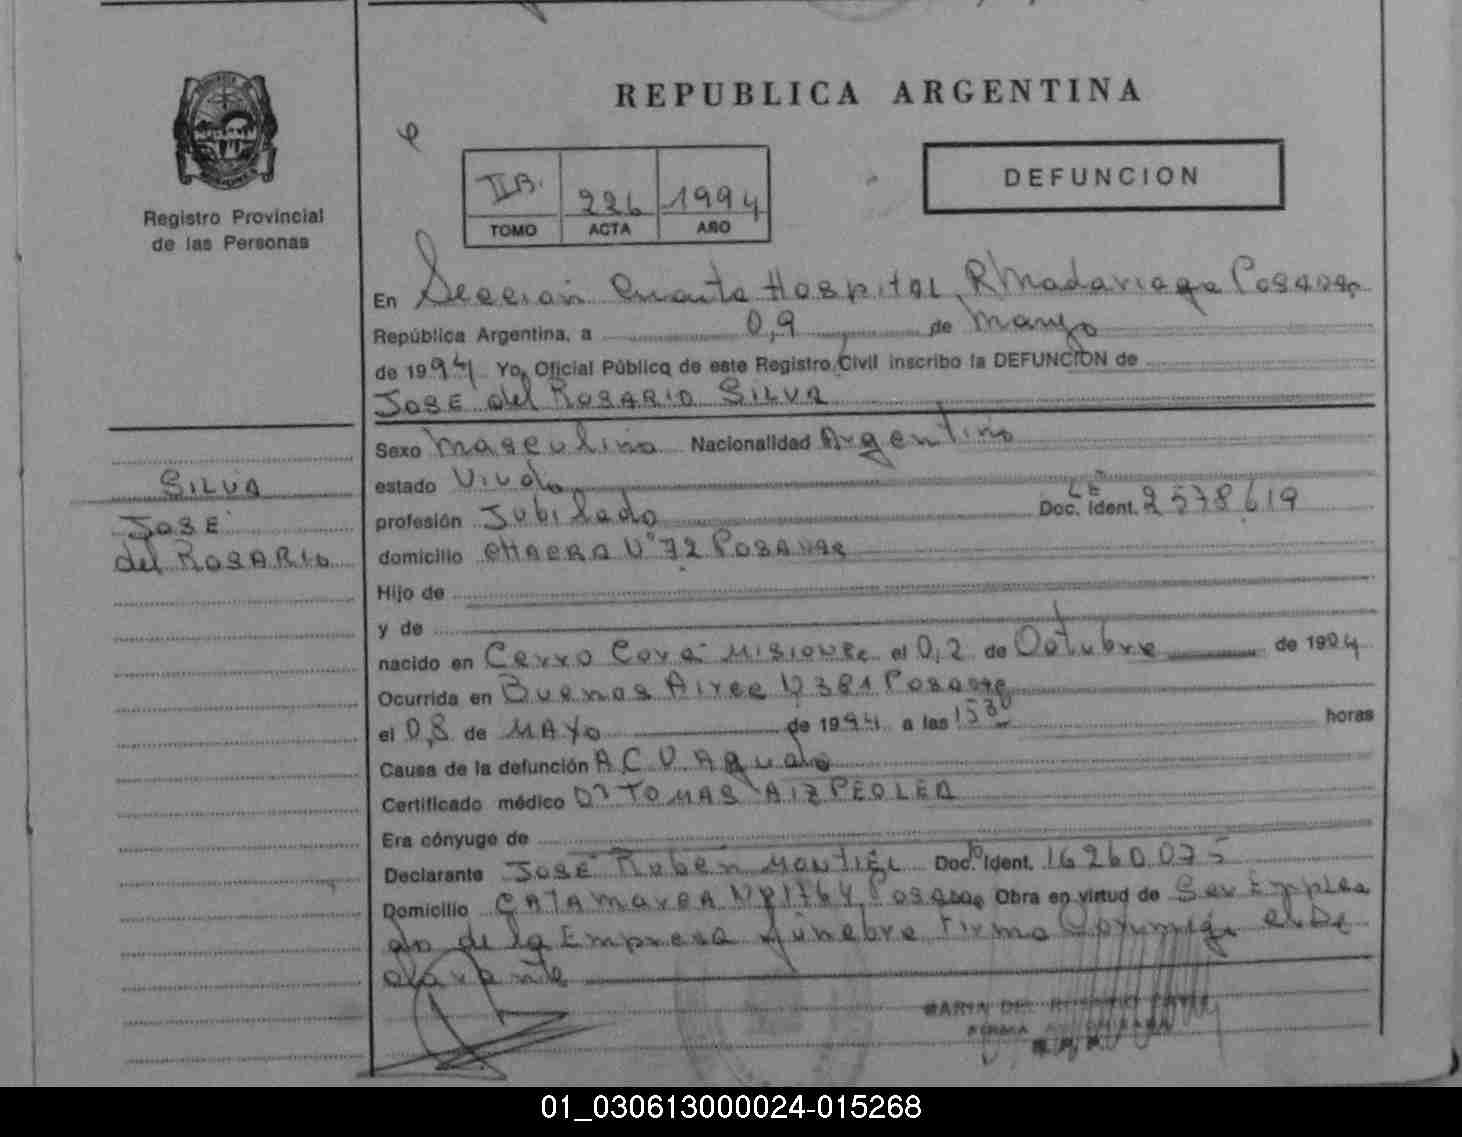 REPUBLICA ARGENTINA
Registro Provincial
de las Personas
II B. 226 1994
TOMO ACTA AÑO
DEFUNCION
En Sección Cuarta Hospital R Madariaga Posadas
República Argentina, a 0,9 de Mayo
de 1994 Yo, Oficial Público de este Registro Civil inscribo la DEFUNCION de
JOSE del ROSARIO SILVA
SILVA
JOSE
del ROSARIO
Sexo Masculino Nacionalidad Argentino
estado Viudo
profesión Jubilado Doc. Ident. LE 2578619
domicilio CHACRA Nº 72 POSADAS
Hijo de
y de
nacido en Cerro Corá MISIONES el 0,2 de Octubre de 19
Ocurrida en Buenos Aires 2381 Posadas
el 0,8 de MAYO de 1994 a las 1530 horas
Causa de la defunción A C V Agudo
Certificado médico Dr TOMAS AIZPEOLEA
Era cónyuge de
Declarante JOSÉ Rubén MONTIEL Doc. Ident. 16260.075
Domicilio CATAMARCA Nº 1764 Posadas Obra en virtud de Ser Emplea
do de la Empresa fúnebre Firma Conmigo el De
clarante
MARIA DEL
01_030613000024-015268